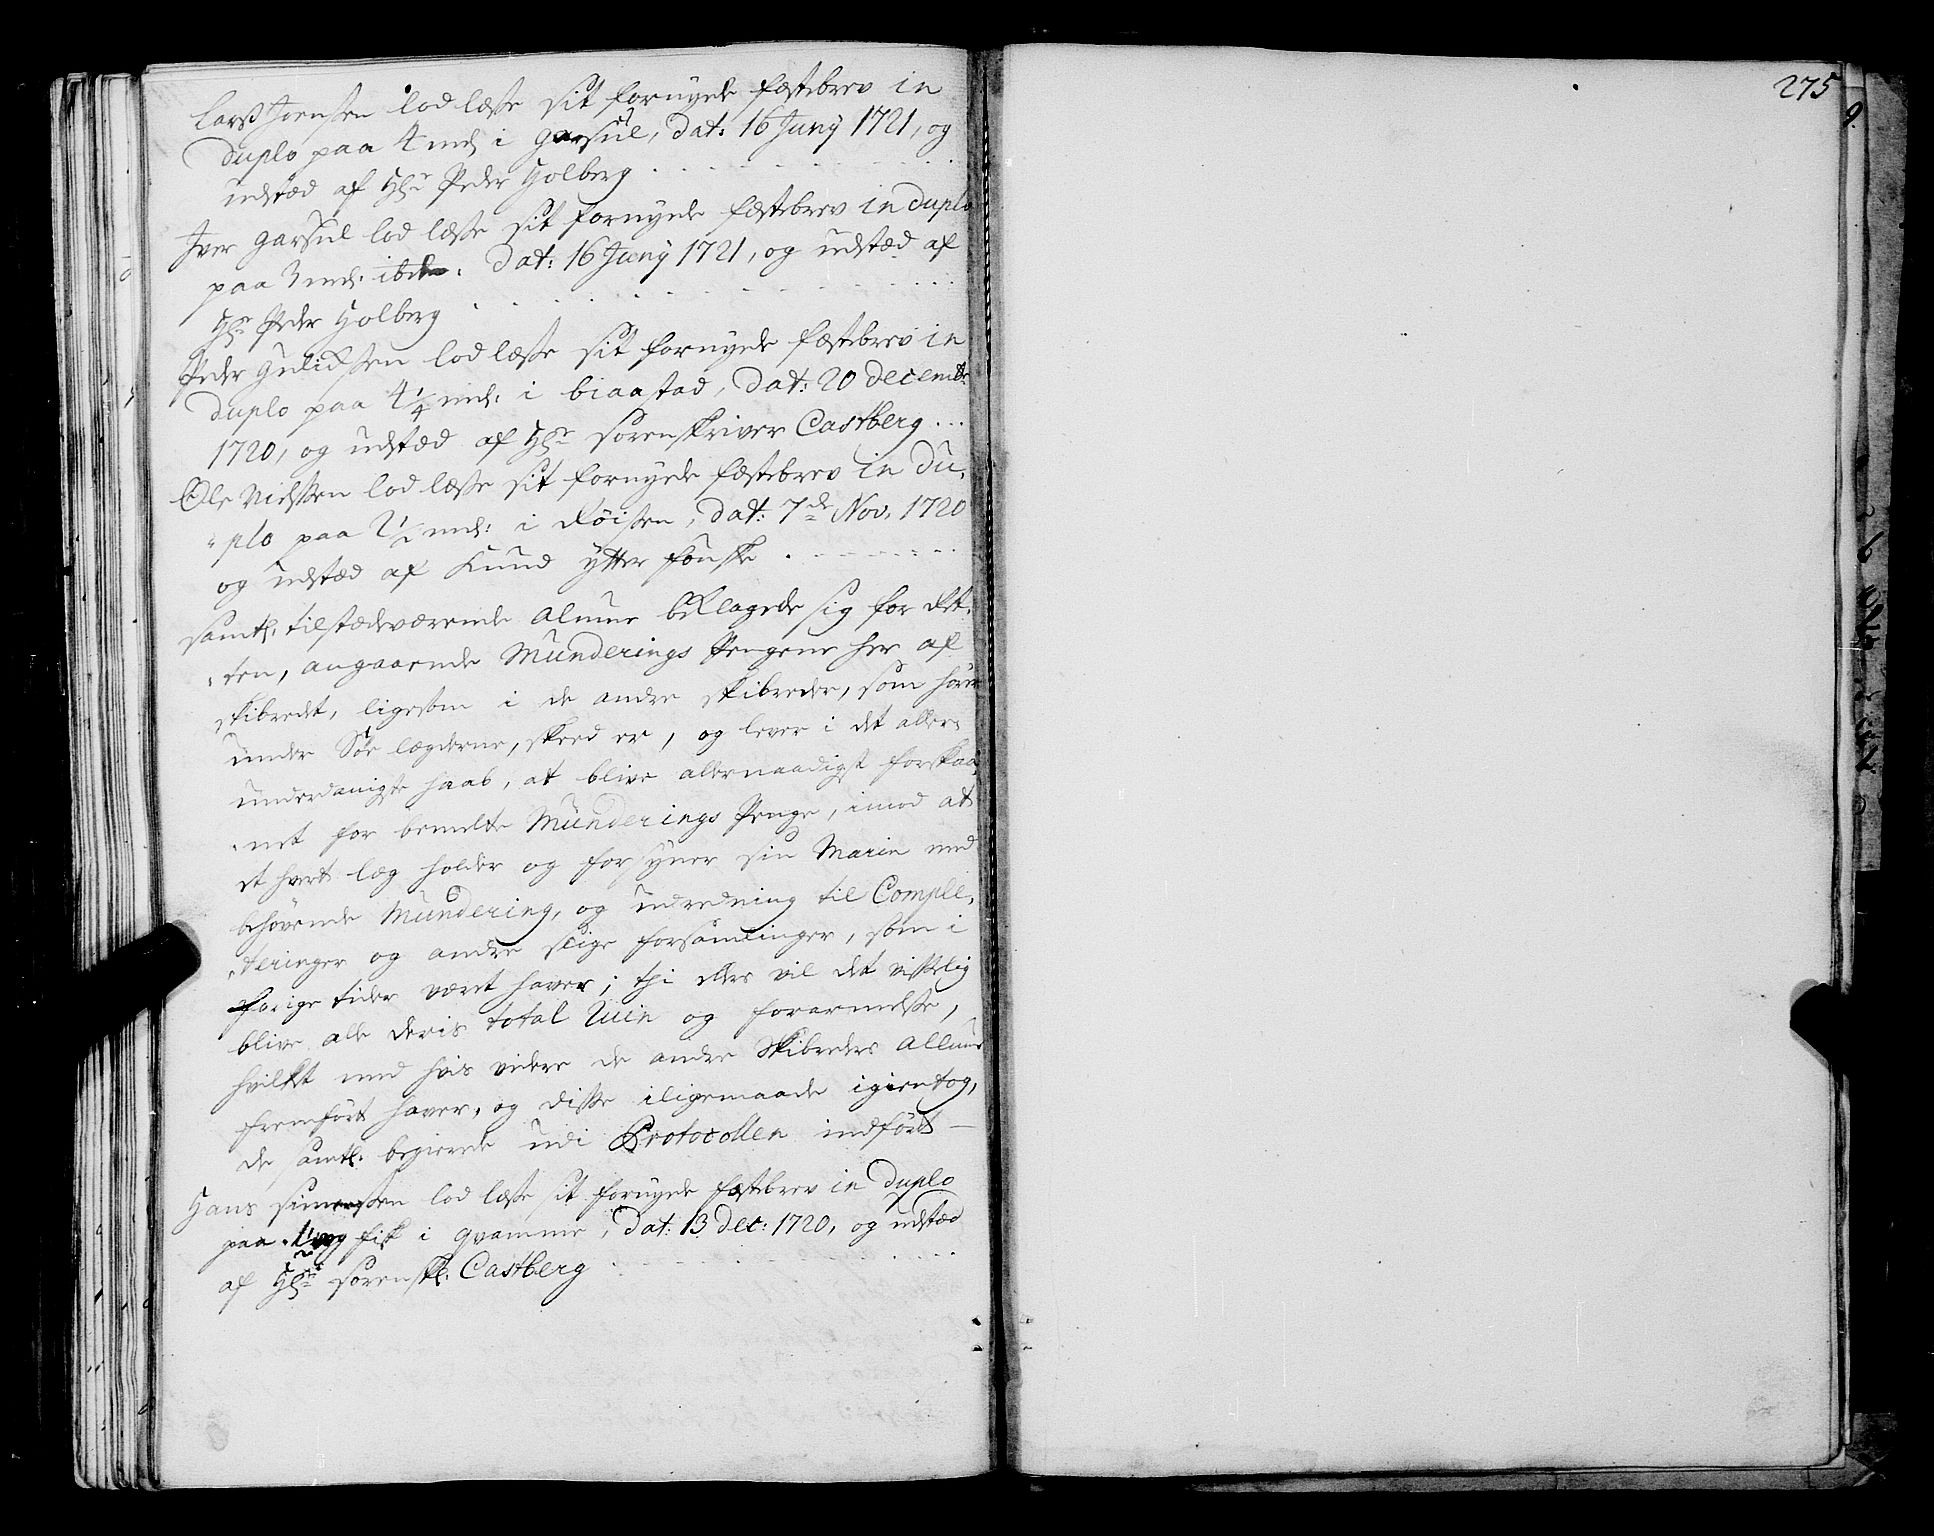 Lars Joensen lod læsse sit fornyede fæstebrev in
duplo paa 4 mk i Garsul, Dat: 16 Juny 1721, og
udstæd af Hr Peder Holberg
Jver Garsul lod læsse sit fornyede fæstebrev in duplo
paa 3 mk: ibdm. Dat: 16 Juny 1721, og udstæd af
Hr Peder Holberg
Peder Gulichsen lod læsse sit fornyede fæstebrev in
duplo paa 4 1/4 mk: i biaastad, Dat: 20 decembr
1720, og udstæd af Hr sorenskriver Castberg
Ole Nielssen lod læsse sit fornyede fæstebrev in du,
,plo paa 2 1/2 mk: i Røissen, dat: 7de Nov. 1720
og udstæd af Knud ytter fønske
samtl. tilstædeværende almue beklagede sig for Ret,
,ten, angaaende Munderings Pengene her af
skibredet, ligesom i de andre skibreder, som hører
under Søe lægderne, skeed er, og lever i det aller,
underdanigste haab, at blive allernaadigst forskaa,
,net for bemelte Munderings Penge, imod at
et hvert læg holder og forsyner sin Marin med
behøvende Mundering, og udredning til Comple,
,teringer og andre slige forsamlinger, som i
forige tider været haver; thi ellers vil det visselig
blive alle deris total Ruin og forarmelsse,
hvilket med hvis videre de andre Skibreders Allmue
fremført haver, og disse iligemaade igientog,
de samtl. begierede udi Protocollen indført
Hans simensen lod læsse sit fornyede fæstebrev in Duplo
paa fisk i Qvamme, Dat: 13 Dec: 1720, og udstæd
af Hr sorenskr. Castberg
275
9.